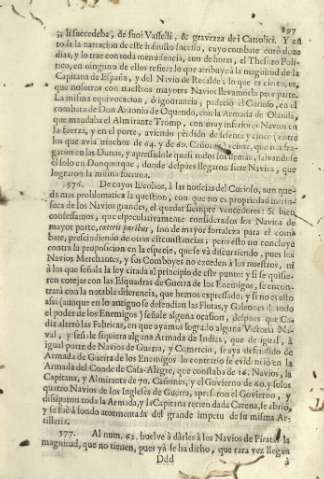 397
li succedeba, de suoi Vasselli, & gravezza de i Cattolici. Y en
toda la narracion de este infausto sucesso, cuyo combate durò
dias, y lo trae con toda menudencia, el Theatro Poli-
tico, en ninguno de ellos refiere lo que arribuye à la magnitud de la
Capitana de España, y del Navio de Recalde: lo que es cierto, es,
que nosotros con nuestros mayores Navios llevamos la peor parte.
La misma equivocacion, ò ignorancia, padeciò el Curioso, en el
combate de Don Antonio de Oquendo, con la Armada de Olanda,
que mandaba el Almirante Tromp, con muy inferiores Navios en
la fuerza, y en el porte, aviendo perdido de setenta y cinco
los que avia muchos de 64. y de 60. Cañones
garon en las Dunas, y apresandole quasi todos los demàs, salvandose
èl solo en Dunquerque, donde despues llegaron siete Navios, que
lograron la misma fortuna.
376. De cuyos las noticias del Curioso, aun que-
da mas problematica la question, con que no es propiedad
seca de los Navios grandes, el quedar siempre vencedores: Si bien
confessamos, que especulativamente considerados los Navios de
mayor porte, cæteris paribus, son de mayor fortaleza para el com-
bate, prescindiendo de otras circunstancias; pero esto no concluye
contra la proposicion en la especie, que se và discurriendo, pues los
Navios Merchantes, y sus Comboyes no exceden à los nuestros, ni
à los que señala la ley citada al principio de este punto: y si se quisie-
ren cotejar con las Esquadras de Guerra de los Enemigos, se encon-
trarà con la notable diferencia, que hemos expressado: y si no es esto
assi (aunque en lo antiguo se defendian las Flotas, y Galeones de todo
el poder de los Enemigos) señale alguna ocasion, despues que Ca-
diz alterò las Fabricas, en que ayamos logrado alguna Victoria Na-
val, y si se supiera alguna Armada de Indias, que de igual, à
igual porte de Navios de Guerra, y Comercio, se aya defendido de
Armada de Guerra de los Enemigos lo contrario se evidenciò en la
Armada del Conde de Casa-Alegre, que constaba de 16. Navios, la
Capitana, y Almirante de 70. Cañones, y el Govierno de 60. y solos
quatro Navios de los Ingleses de Guerra, apresaron el Govierno, y
dissiparon toda la Armada, y la Capitana recien dada Carena, se abriò,
y se fuè à fondo atormentada del grande impetu de su misma Ar-
tilleria.
377. Al num. 62. buelve à darles à los Navios de Piratas la
magnitud, que no tienen, pues yà se ha dicho, que rara vez llegan
Ddd à